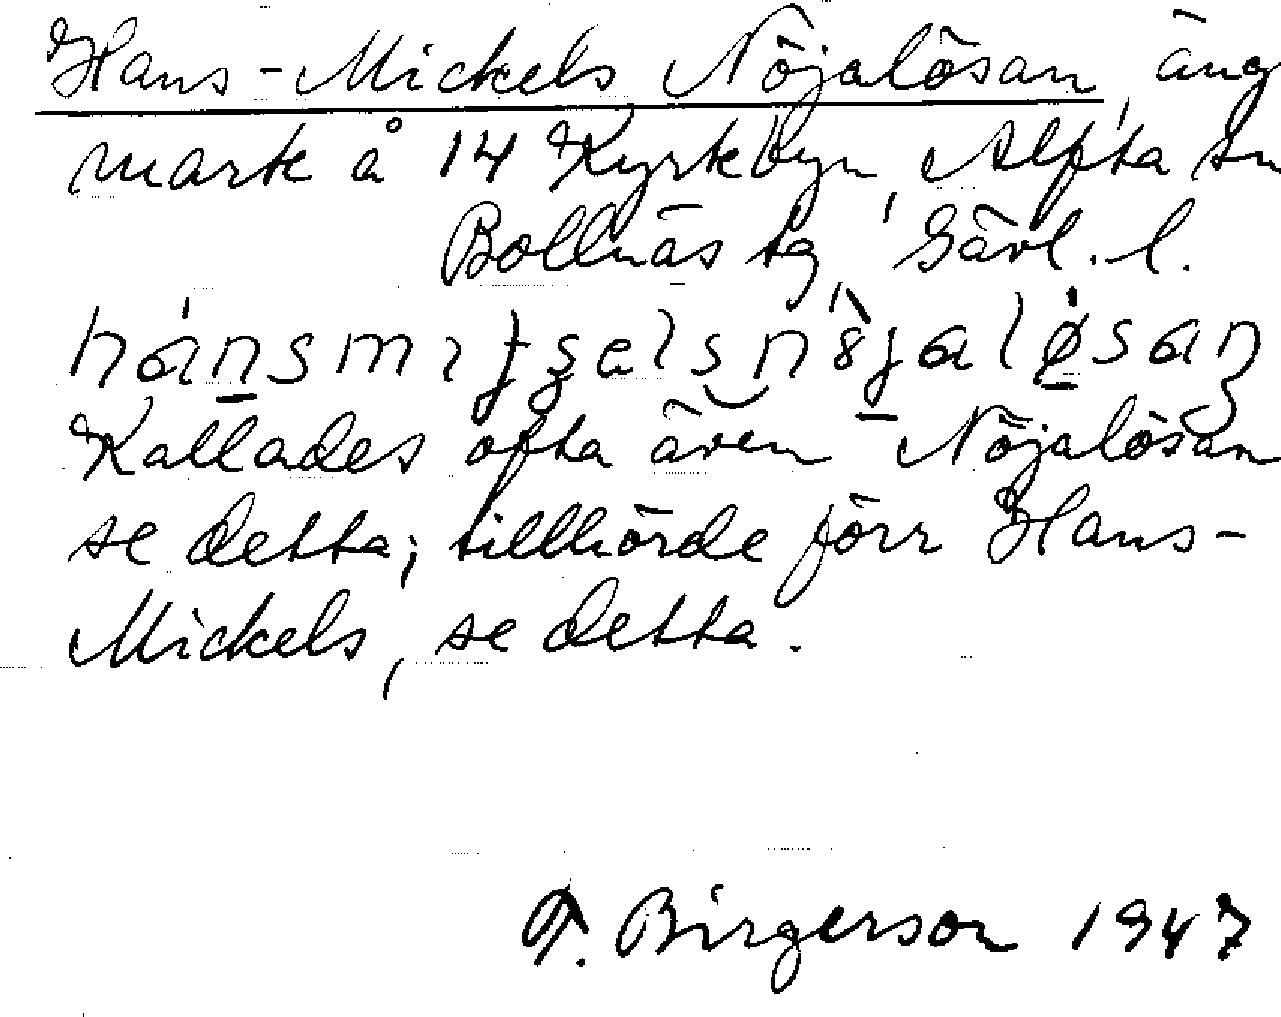 Hans-Mickels Nöjalösan, äng
mark å 14 Kyrkbyn, Alfta sn
Bollnäs tg, Gävl. l.
Kallades ofta även Nöjalösan
se detta; tillhörde förr Hans-
Mickels, se detta.
F. Birgerson 1947